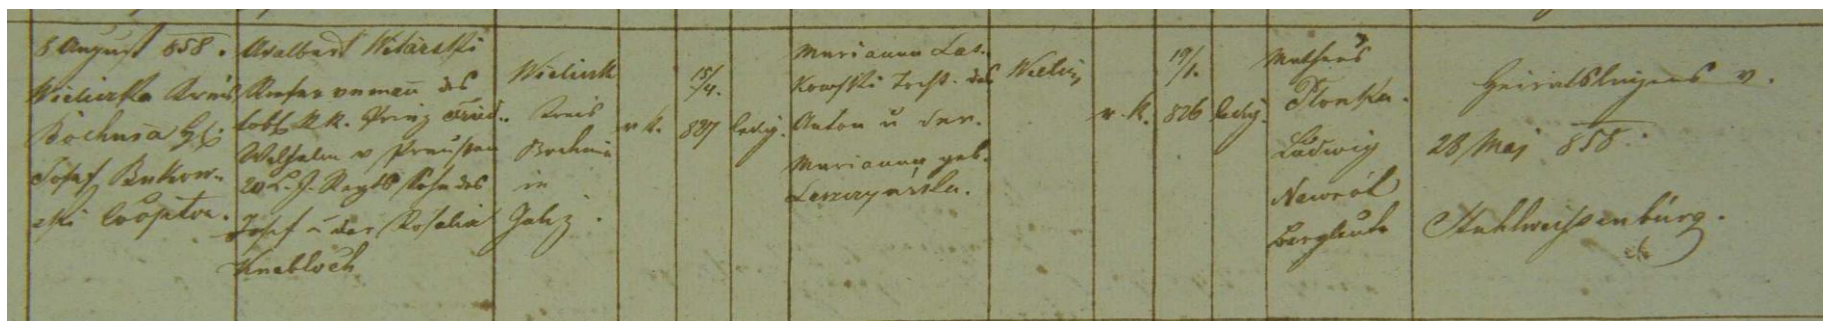 8 August 858.
Wieliczka Kreis
Bochnia
Josef Bukow-
ski Cooptor.
Adalbert Witarski
Reservemann des
lobl. K.K. Prinz Fried.
Wilhelm v Preussen
20 L. J. Regts Sohn des
Josef u der Rosalia
Knebloch
Wielizk
Kreis
Bochnia
in
Galiz.
r. k.
15/4.
827
ledig.
Marianna Las-
kowski Tocht. des
Anton u der
Marianna geb.
Leszczynska.
Wieliz
r. k.
19/1.
826
ledig.
Matheus
Plonka.
Ludwig
Nawrot
Bergleute
Heiratslizens v.
28 Maj 858.
Stuhlweissenburg.